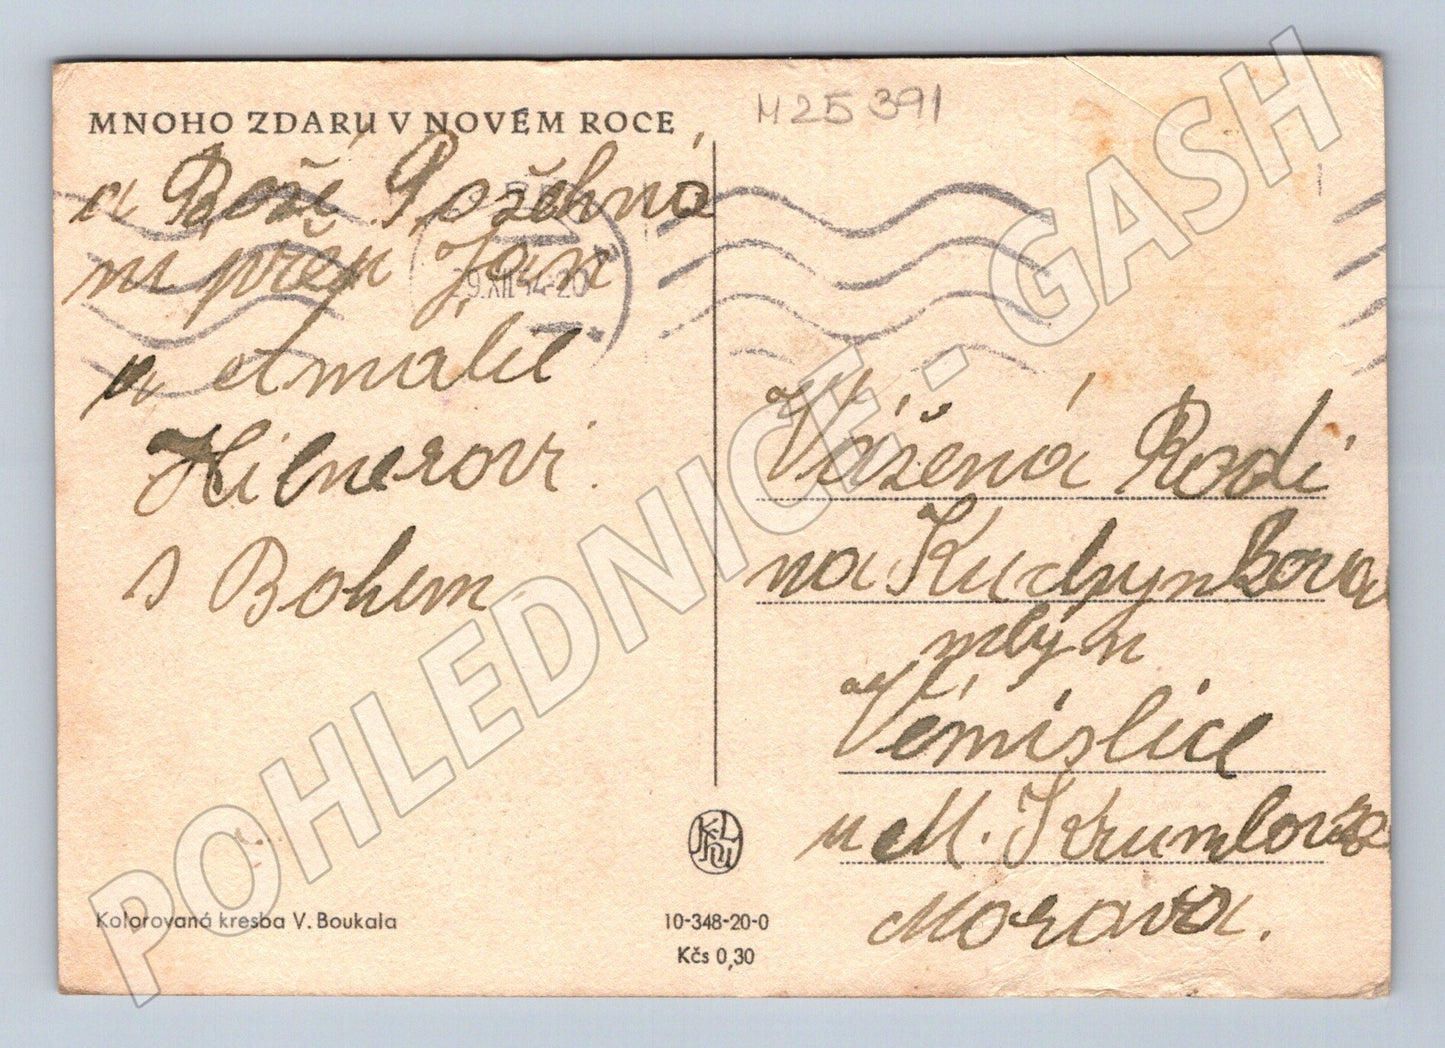 MNOHO ZDARU V NOVÉM ROCE
a Boží Požehná
ní přeji Jan
a Amalie
Hilnerovi.
s Bohem
H25391
9.XII.54-20
Vážená Rodi
na Kuchynkova
mlýn
Vémislice
u M. Krumlova
Morava.
Kolorovaná kresba V. Boukala
10-348-20-0
Kčs 0,30
POHLEDNICE - GASH